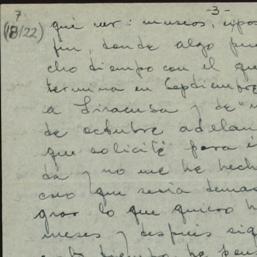 7 -3-
(18/22) que ver: museos, expos
fin, donde algo pue
cho tiempo con el que
termina en Septiembre
a Siracusa y de "
de octubre adelan
que solicité para
da y no me he hech
creo que sería demas
grar lo que quiero h
meses y después sig